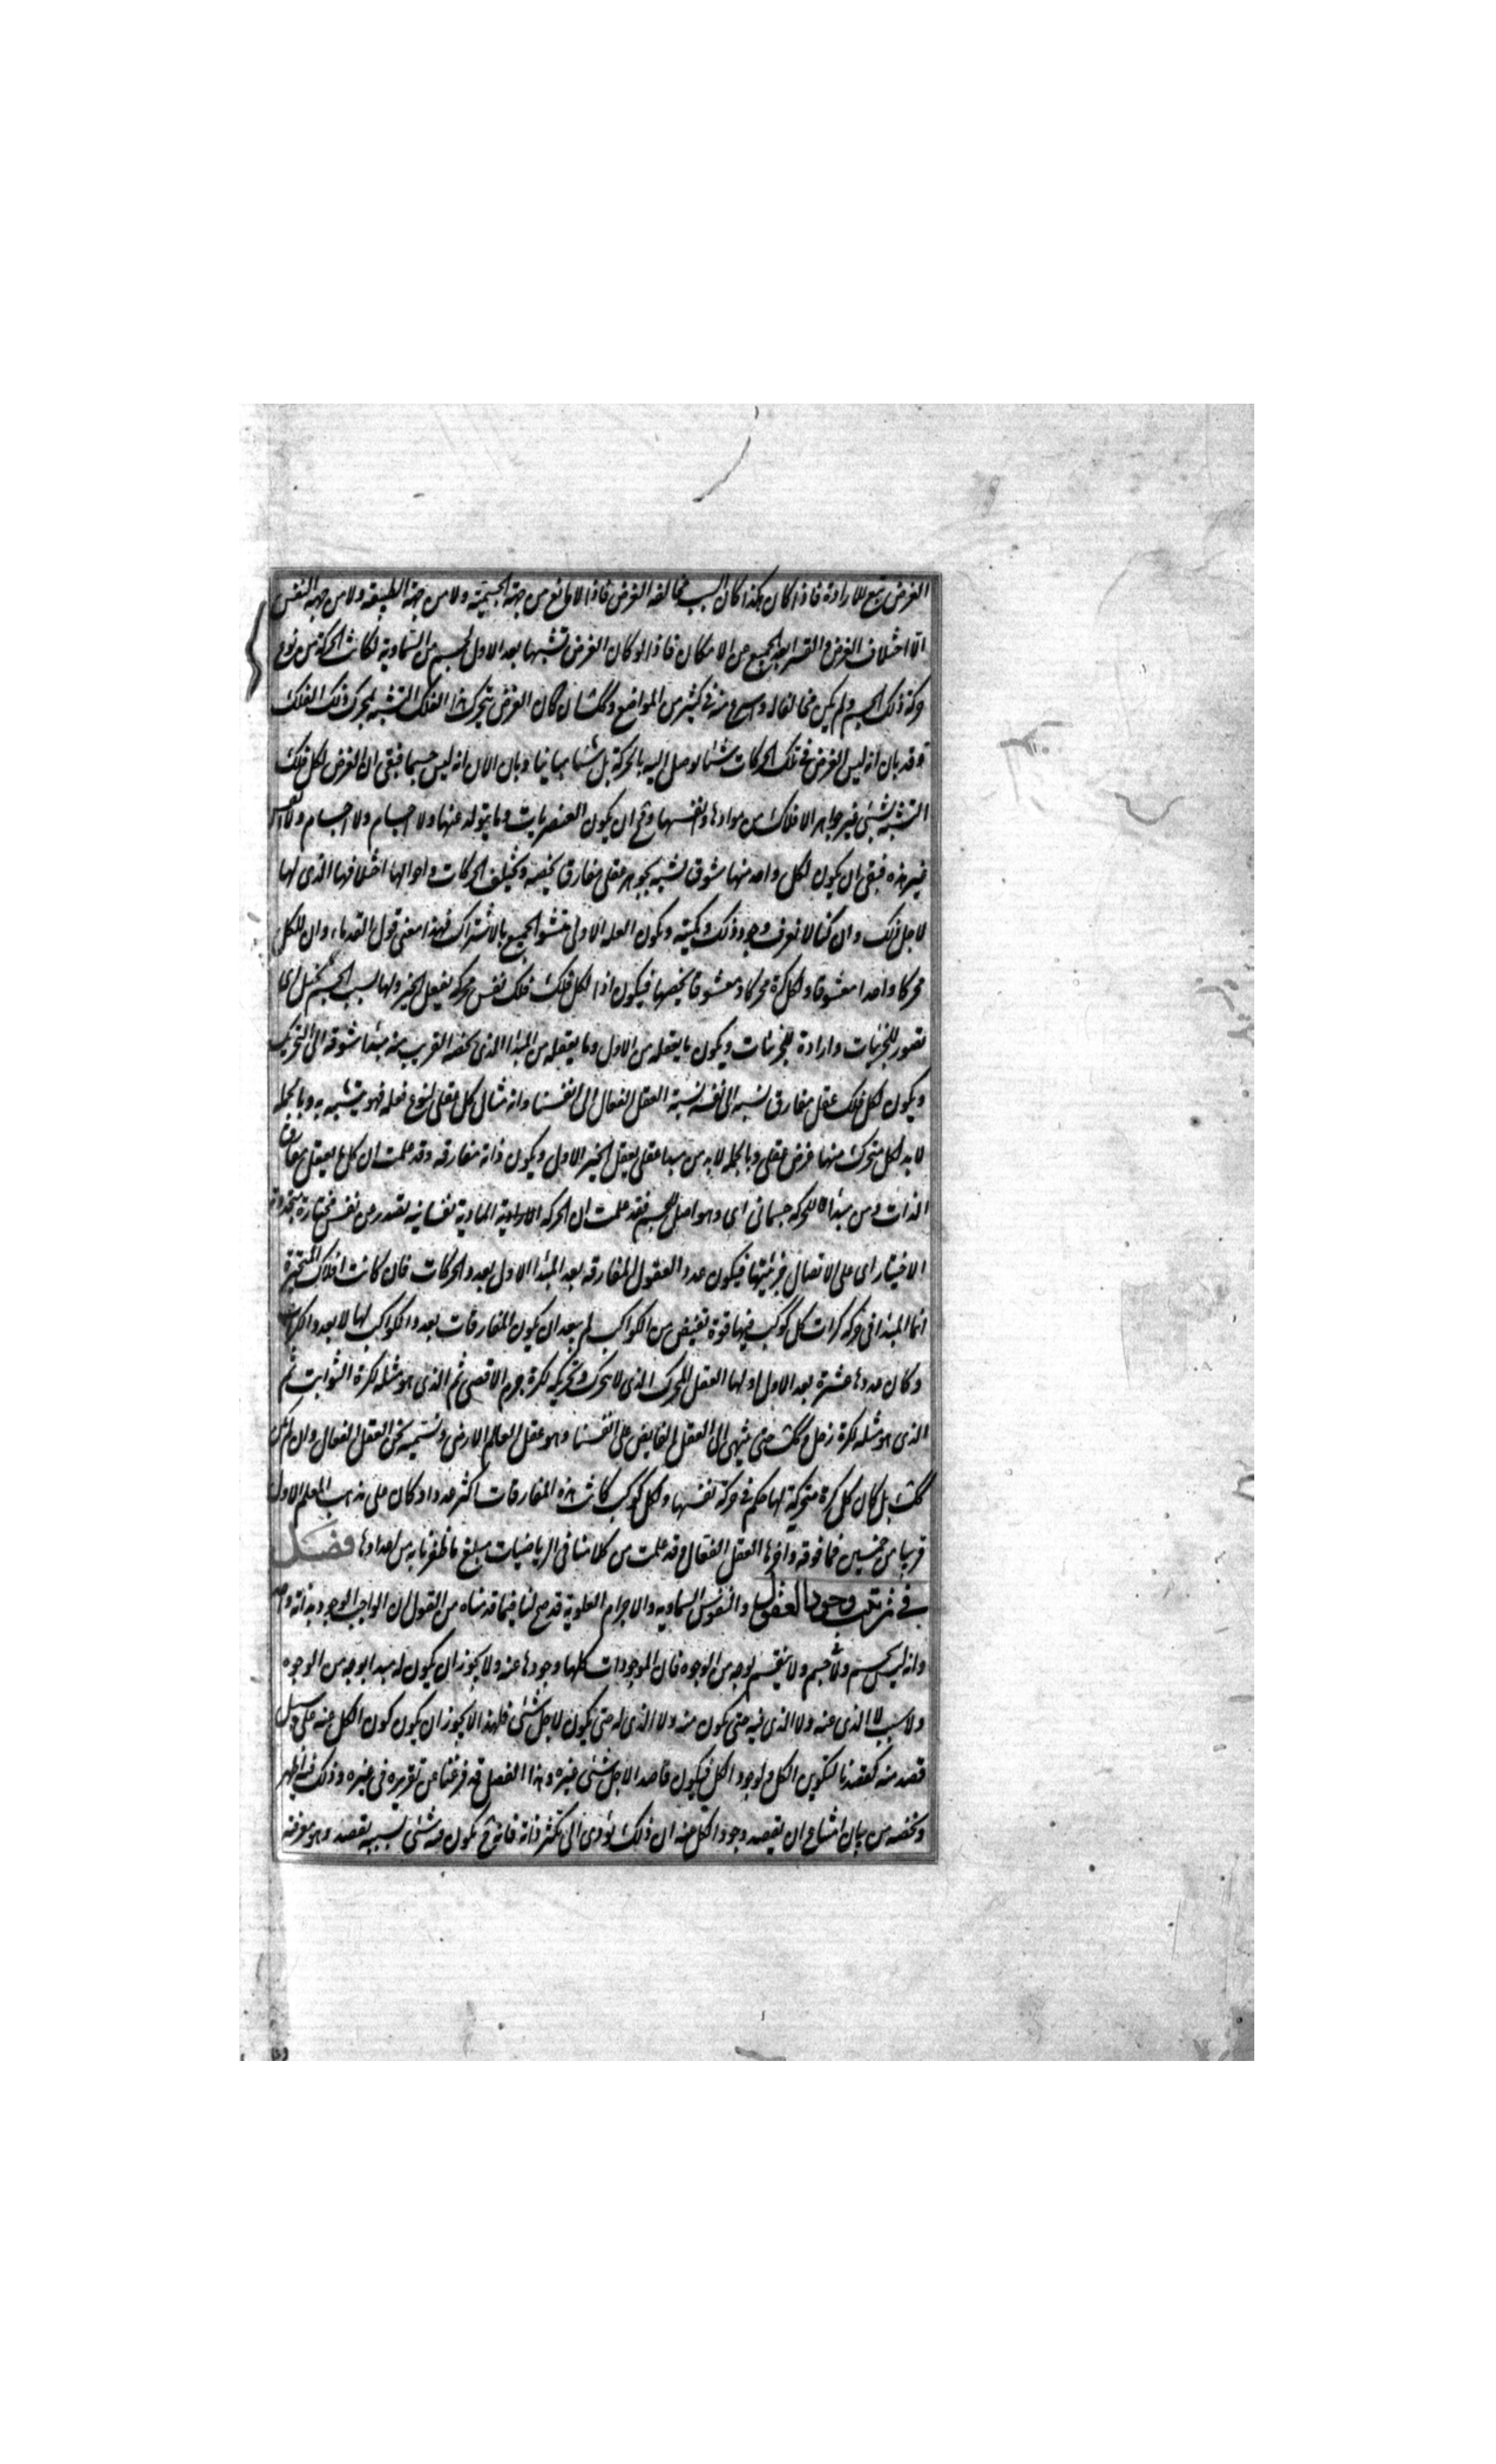 الغرض تبع للارادة فاذا كان هكذا كان السبب مخالفه الغرض فاذا لا مانع من جهة الجسمية ولا من جهة الطبيعه ولا من جهة النفس
الا اختلاف الغرض والقسر ابعد الجميع عن الامكان فاذا لو كان الغرض تشبها بعد الاول بجسم من السماوية لكانت الحركة من نوع
حركة ذلك الجسم ولم يكن مخالفا له واسرع منه في كثير من المواضع وكك ان كان الغرض لمحرك هذا الفلك التشبه بمحرك ذلك الفلك
وقد بان انه ليس الغرض في تلك الحركات شيئا يوصل اليه بالحركة بل شيئا مباينا وبان الان انه ليس جسما فبقى ان الغرض لكل فلك
التشبه بشئ غير جواهر الافلاك من موادها وانفسها ومح ان يكون العنصريات وما يتولد عنها ولا اجسام ولا انفس
غير هذه فبقى ان يكون لكل واحد منها شوق تشبه بجوهر عقلى مفارق يخصه وتختلف الحركات واحوالها اختلافها الذى لها
لاجل ذلك وان كنا لا نعرف وجود ذلك وكميته ويكون العله الاولى متشوق الجميع بالاشتراك فهذا معنى قول القدماء ان للكل
محركا واحدا معشوقا ولكل كرة محركا ومعشوقا يخصها فيكون اذا لكل فلك نفس محركه تعقل الخير ولها بسبب الجسم تخيل اى
تصور للجزئيات وارادة للجزئيات ويكون ما يعقله من الاول وما يعقله من المبدا الذى يخصه القريب منه مبدأ شوقه الى التحريك
ويكون لكل فلك عقل مفارق نسبته الى نفسه نسبة العقل الفعال الى انفسنا وانه مثال كلى عقلى لنوع فعله فهو يتشبه به وبالجمله
لا بد لكل متحرك منها غرض عقلى وبالجمله لا بد من مبدا عقلى يعقل الخير الاول ويكون ذاته مفارقه وقد علمت ان كل ما يعقل مفارق
الذات ومن مبدأ للحركه جسمانى اى مواصل للجسم فقد علمت ان الحركه السماوية نفسانيه تصدر عن نفس مختارة متجددة
الاختيار اى على الاتصال جزئيتها فيكون عدد العقول المفارقه بعد المبدا الاول بعدد الحركات فان كانت افلاك المتحيرة
انما المبدا فى حركه كرات كل كوكب فيها قوة تفيض من الكواكب لم يبعد ان يكون المفارقات بعدد الكواكب لها لا بعدد الكرات
وكان عددها عشرة بعد الاول اولها العقل المحرك الذى لا يتحرك وتحريكه لكرة جرم الاقصى ثم الذى هو مثله لكرة الثوابت ثم
الذى هو مثله لكرة زحل وكك حتى ينتهى الى العقل الفايض على انفسنا وهو عقل العالم الارضى ونسميه نحن العقل الفعال وان لم يكن
كك بل كان كل كرة متحركة لها حكم فى حركة نفسها ولكل كوكب كانت هذه المفارقات اكثر عددا وكان على مذهب المعلم الاول
قريبا من خمسين فما فوقه وآخرها العقل الفعال وقد علمت من كلامنا فى الرياضيات مبلغ ما ظفرنا به من اعدادها فصل
فى ترتيب وجود العقول والنفوس السماويه والاجرام العلوية قد صح لنا فيما قدمناه من القول ان الواجب الوجود بذاته واحد
وانه ليس بجسم ولا فى جسم ولا ينقسم بوجه من الوجوه فان الموجودات كلها وجودها عنه ولا يجوز ان يكون له مبدا بوجه من الوجوه
ولا سبب لا الذى عنه ولا الذى فيه حتى يكون منه ولا الذى له حتى يكون لاجل شئ فلهذا لا يجوز ان يكون كون الكل عنه على سبيل
قصد منه كقصدنا لتكوين الكل ولوجود الكل فيكون قاصدا لاجل شئ غيره وهذا الفصل قد فرغنا عن تقريره فى غيره وذلك فيه اظهر
ونخصه من بيان امتناع ان يقصد وجود الكل عنه ان ذلك يؤدى الى تكثر ذاته فانه ح يكون فيه شئ بسببه يقصد وهو معرفته